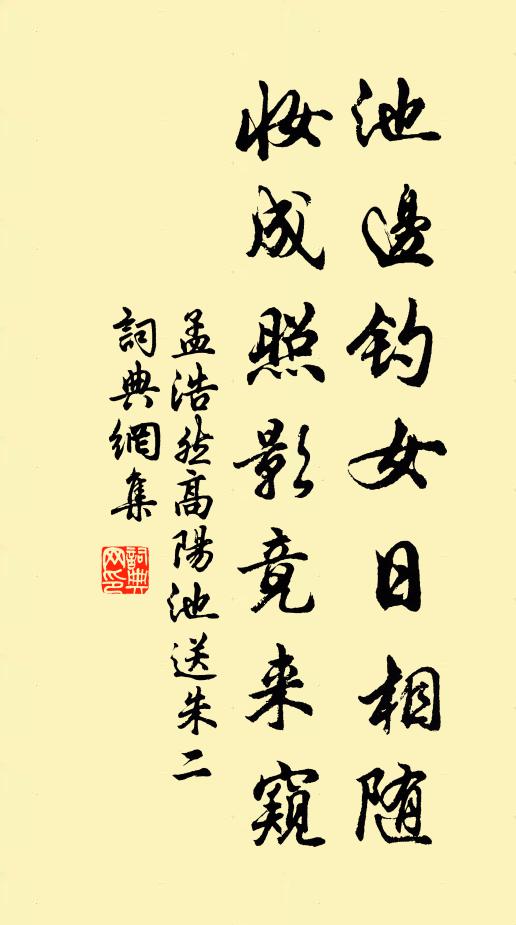 池邊钓女日相随
妆成照影竟来窺
孟浩然高陽池送朱二
詞典網集
詞典网印